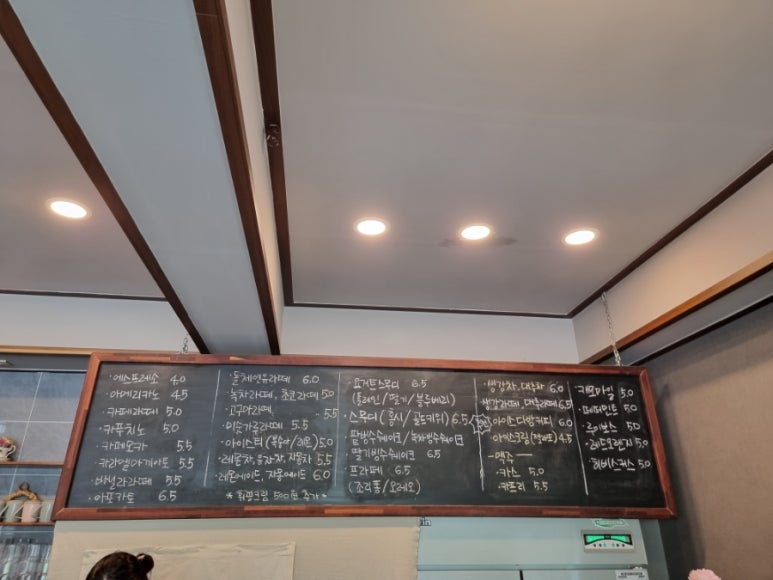 · 에스프레소 4.0
· 아메리카노 4.5
· 카페라떼 5.0
· 카푸치노 5.0
· 카페모카 5.5
· 카라멜마끼아또 5.5
· 바닐라라떼 5.5
· 아포카토 6.5
· 돌체연유라떼 6.0
· 녹차라떼, 초코라떼 5.0
· 고구마라떼, 5.5
· 미숫가루라떼 5.5
· 아이스티 (복숭아/레몬) 5.0
· 레몬차, 유자차, 자몽차 5.5
· 레몬에이드, 자몽에이드 6.0
* 휘핑크림 500원 추가 *
· 요거트스무디 6.5
(플레인/딸기/블루베리)
· 스무디 (홍시/골드키위) 6.5
· 팥빙수쉐이크/녹차빙수쉐이크
· 딸기빙수쉐이크 6.5
· 프라페 6.5
(조리퐁/오레오)
· 생강차, 대추차 6.0
· 생강라떼, 대추라떼 6.5
· 아이스다방커피 6.0
· 아이스크림 4.5
- 맥주 -
· 카스 5.0
· 카프리 5.5
· 캐모마일 5.0
· 페퍼민트 5.0
· 루이보스 5.0
· 레드오렌지 5.0
· 히비스커스 5.0